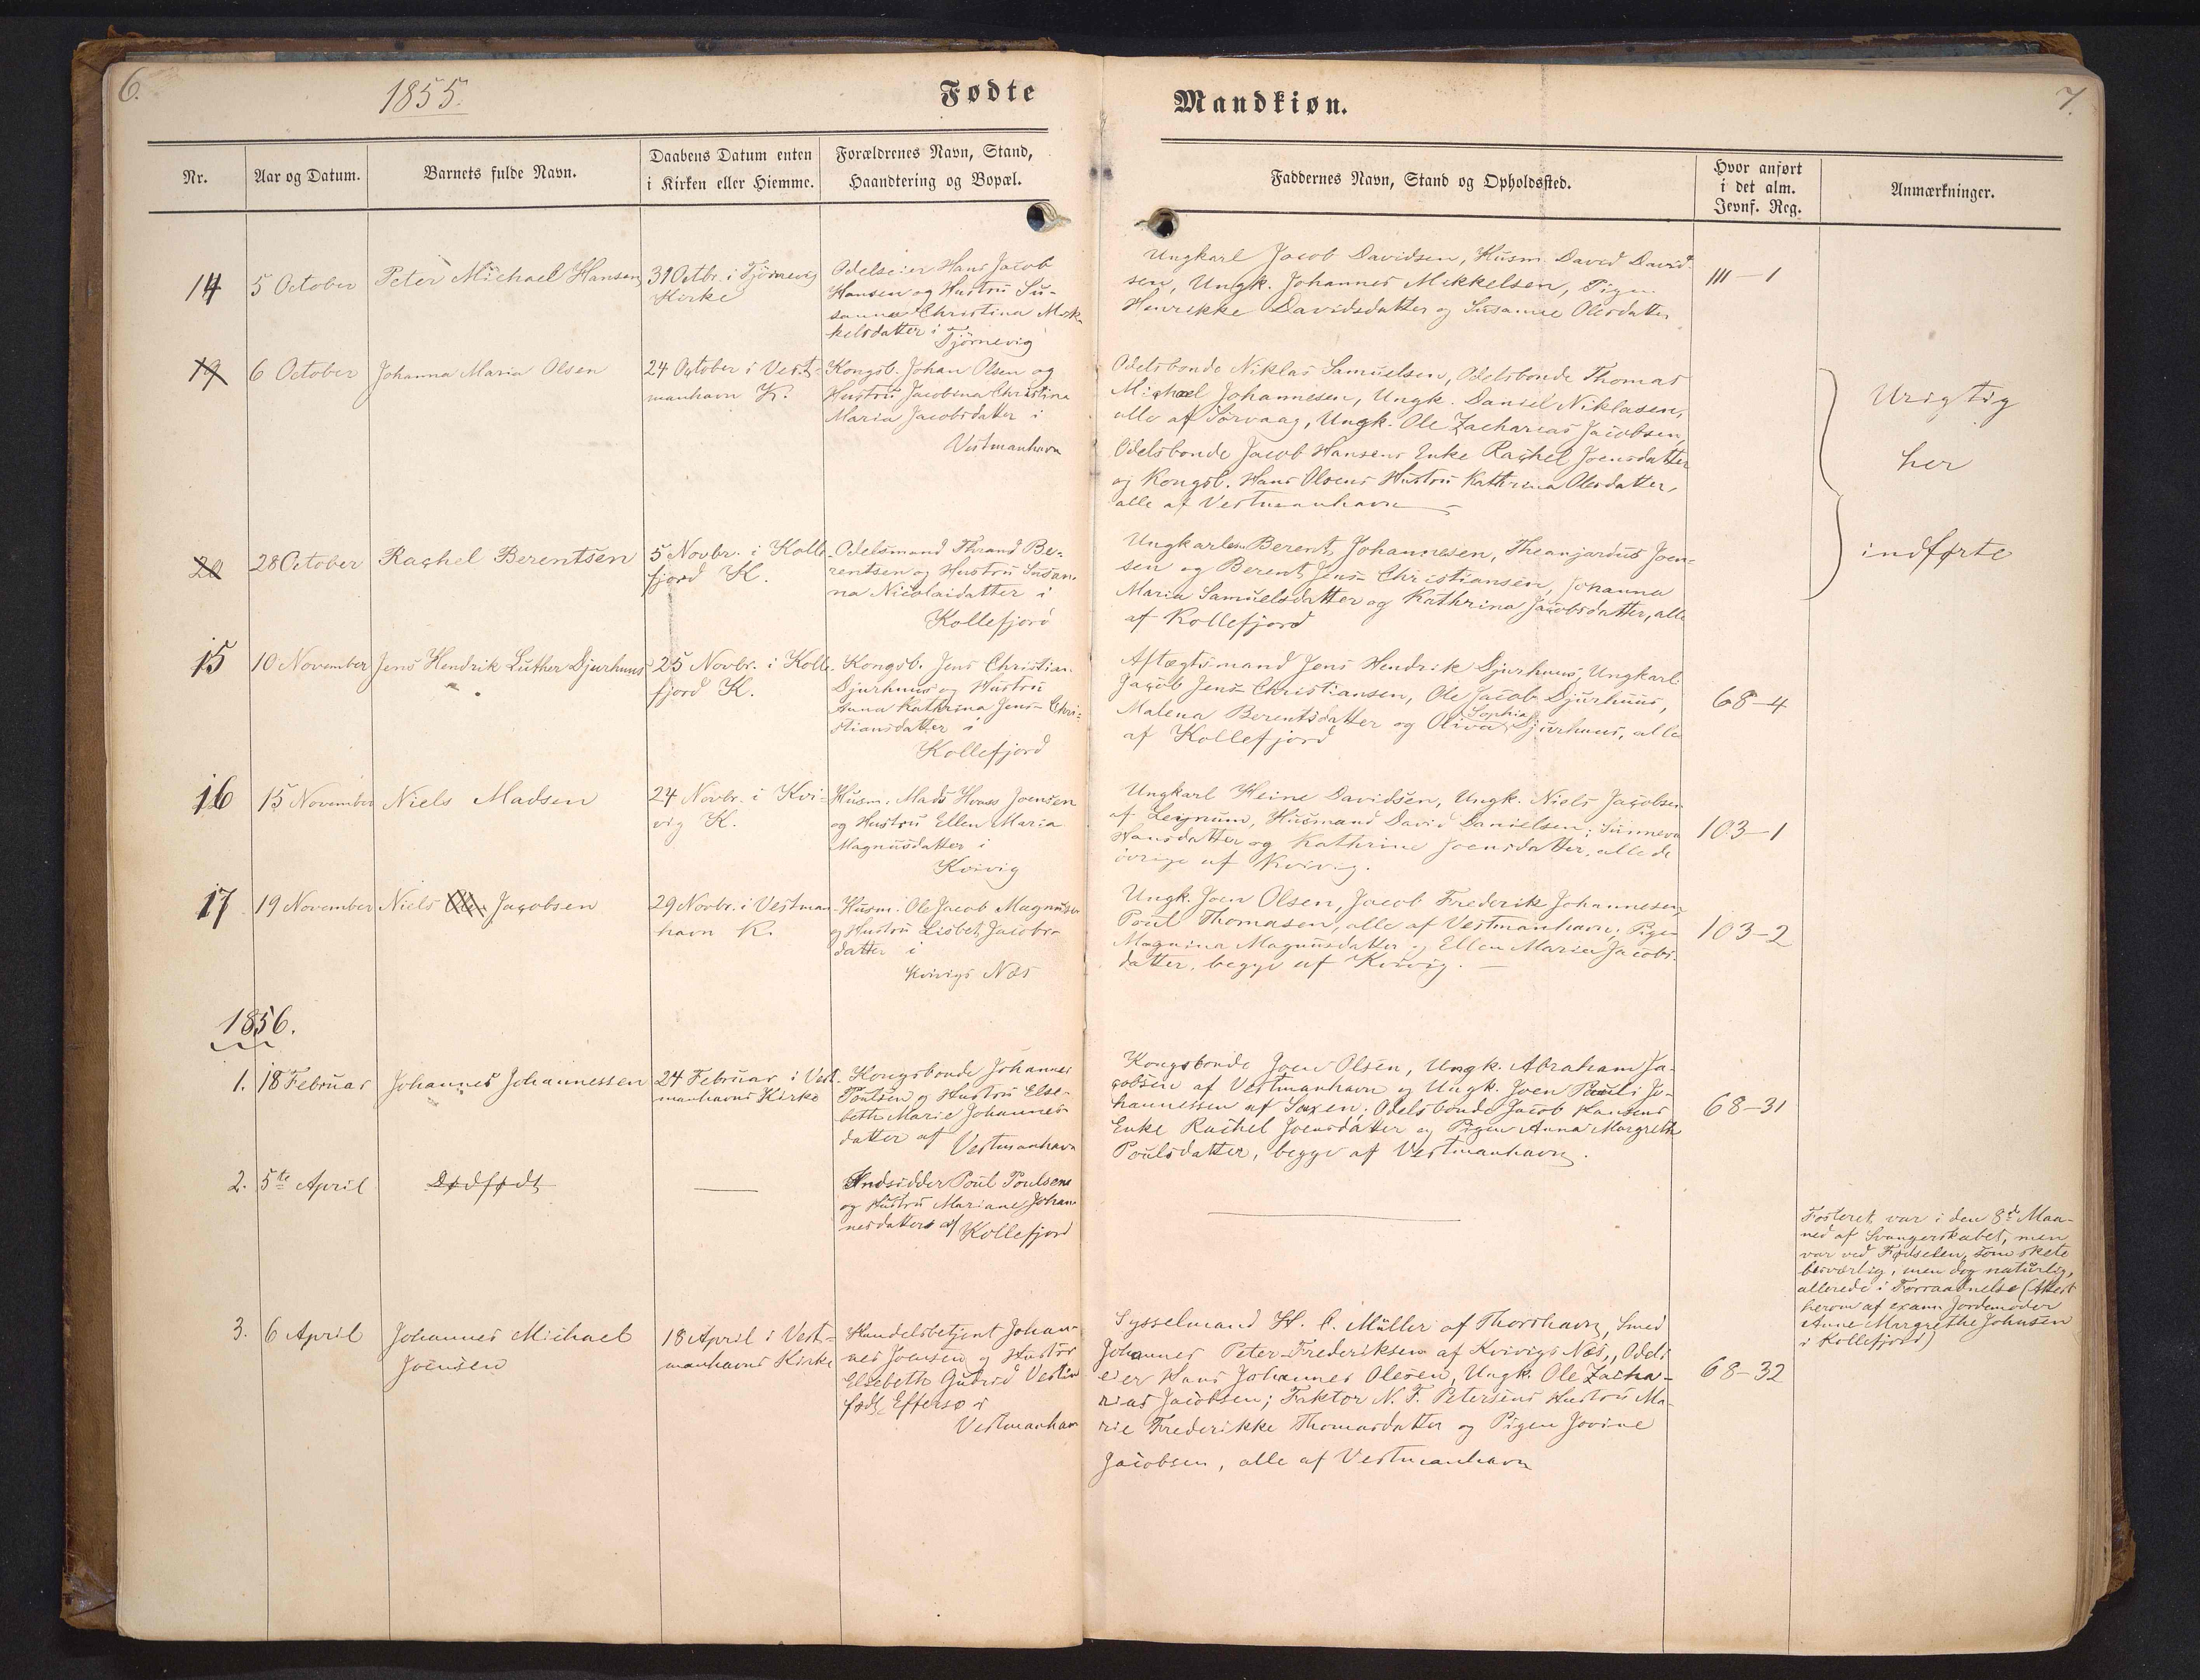 6.
1855.
Fødte
Nr.
Aar og Datum.
Barnets fulde Navn.
Daabens Datum enten
i Kirken eller Hiemme.
Forældrenes Navn, Stand,
Haandtering og Bopæl.
14
5 October
Peter Michael Hansen
31 Octbr. i Tjörnevig
Kirke
Odelseier Hans Jacob
Hansen og Hustru Su-
sanna Christina Mik-
kelsdatter i
Tjörnevig
19
6 October
Johanna Maria Olsen
24 October i Vest-
manhavn K.
Kongsb. Johan Olsen og
Hustru Jacobina Christina
Maria Jacobsdatter i
Vestmanhavn
20
28 October
Rachel Berentsen
5 Novbr. i Kolle-
fjord K.
Odelsmand Thrand Be-
rentsen og Hustru Susan-
na Nicolaidatter i
Kollefjord
15
10 November
Jens Hendrik Luther Djurhuus
25 Novbr. i Kolle-
fjord K.
Kongsb. Jens Christian
Djurhuus og Hustru
Anna Kathrina Jens-Chri-
stiansdatter i
Kollefjord
16
15 November
Niels Madsen
24 Novbr. i Kvi-
vig K.
Husm. Mads Joensen
og Hustru Ellen Maria
Magnusdatter i
Kvivig
17
19 November
Niels Ole Jacobsen
29 Novbr. i Vestman-
havn K.
Husm. Ole Jacob Magnusen
og Hustru Lisbet Jacobs-
datter i
Kvivigs Næs
1856.
1.
18 Februar
Johannes Johannessen
24 Februar i Vest-
manhavns Kirke
Kongsbonde Johannes
Poulsen og Hustru Else-
beth Marie Johannes-
datter af
Vestmanhavn
2.
5te April
Dødfødt
Indsidder Poul Poulsens
og Hustru Mariane Johan-
nesdatters af
Kollefjord
3.
6 April
Johannes Michael
Joensen
18 April i Vest-
manhavns Kirke
Handelsbetjent Johan-
nes Joensen og Hustru
Elsebeth Gudrid Vestin
født Effersø i
Vestmanhavn
7.
Mandkiøn.
Faddernes Navn, Stand og Opholdssted.
Hvor anført
i det alm.
Jevnf. Reg.
Anmærkninger.
Ungkarl Jacob Davidsen, Husm. David David-
sen, Ungk. Johannes Mikkelsen, Pigen
Henrikke Davidsdatter og Susanne Olesdatter
111-1
Odelsbonde Niklas Samuelsen, Odelsbonde Thomas
Michael Johannesen, Ungk. Daniel Niklasen,
alle af Sörvaag, Ungk. Ole Zacharias Jacobsen,
Odelsbonde Jacob Hansens Enke Rachel Joensdatter
og Kongsb. Hans Olsens Hustru Kathrina Olesdatter,
alle af Vestmanhavn
Urigtig
her
indførte
Ungkarlene Berent Johannesen, Joen-
sen og Berent Jens-Christiansen, Johanna
Maria Samuelsdatter og Kathrina Jacobsdatter, alle
af Kollefjord
Aftægtsmand Jens Hendrik Djurhuus, Ungkarl
Jacob Jens-Christiansen, Ole Jacob Djurhuus,
Malena Berentsdatter og Oliva Sophia Djurhuus, alle
af Kollefjord
68-4
Ungkarl Heine Davidsen, Ungk. Niels Jacobsen
af Leynum, Husmand David Danielsen; Sunneva
Hansdatter og Kathrine Joensdatter, alle de
övrige af Kvivig.
103-1
Ungk. Joen Olsen, Jacob Frederik Johannesen,
Poul Thomasen, alle af Vestmanhavn; Pigen
Magnina Magnusdatter og Ellen Maria Jacobs-
datter, begge af Kvivig.
103-2
Kongsbonde Joen Olsen, Ungk. Abraham Ja-
cobsen af Vestmanhavn og Ungk. Joen Pauli Jo-
hannessen af Saxen; Odelsbonde Jacob Hansens
Enke Rachel Joensdatter og Pigen Anna Margrethe
Poulsdatter, begge af Vestmanhavn.
68-31
Fosteret var i den 8de Maa-
ned af Svangerskabet, men
var ved Fødselen, som skete
besværlig, men dog naturlig,
allerede i Forraadnelse (Attest
herom af exam. Jordemoder
Anne Margrethe Johnsen
i Kollefjord)
Sysselmand H. C. Müller af Thorshavn, Smed
Johannes Peter Frederiksen af Kvivigs Næs, Odels-
eier Hans Johannes Olesen, Ungk. Ole Zacha-
rias Jacobsen; Faktor N. F. Petersens Hustru Ma-
rie Frederikke Thomasdatter og Pigen Jovine
Jacobsen, alle af Vestmanhavn
68-32